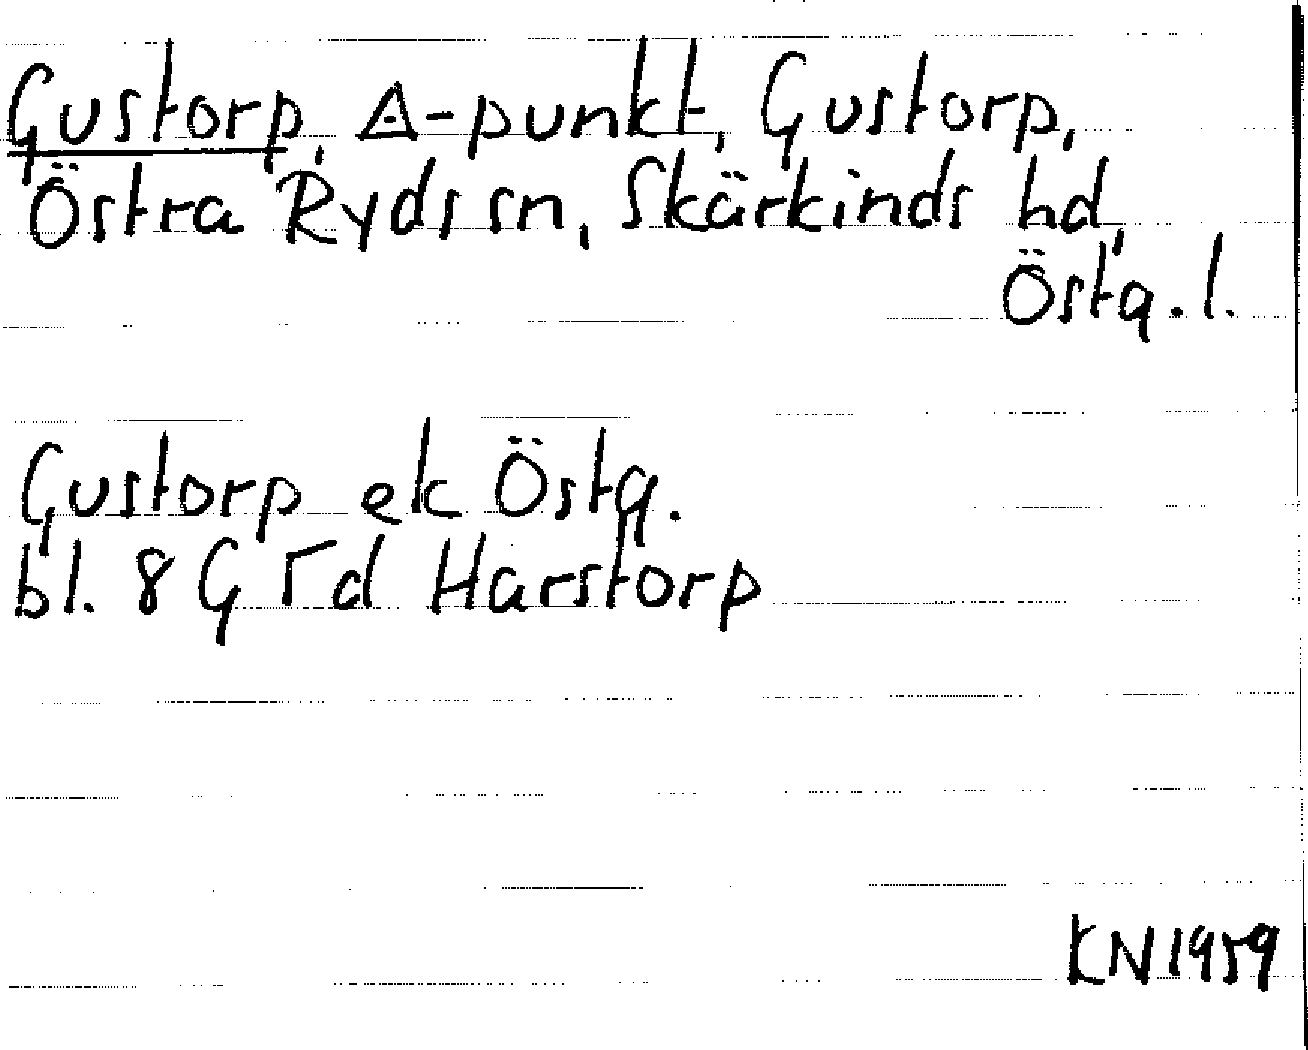 Gustorp, △-punkt, Gustorp,
Östra Ryds sn, Skärkinds hd,
Östg. l.
Gustorp ek Östg.
bl. 8 G 5 d Harstorp
KN 1959